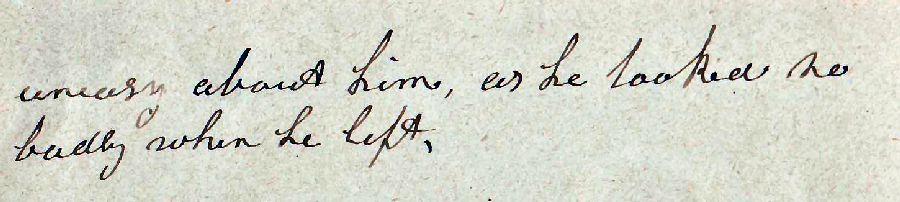 uneasy about him, as he looked so
badly when he left.